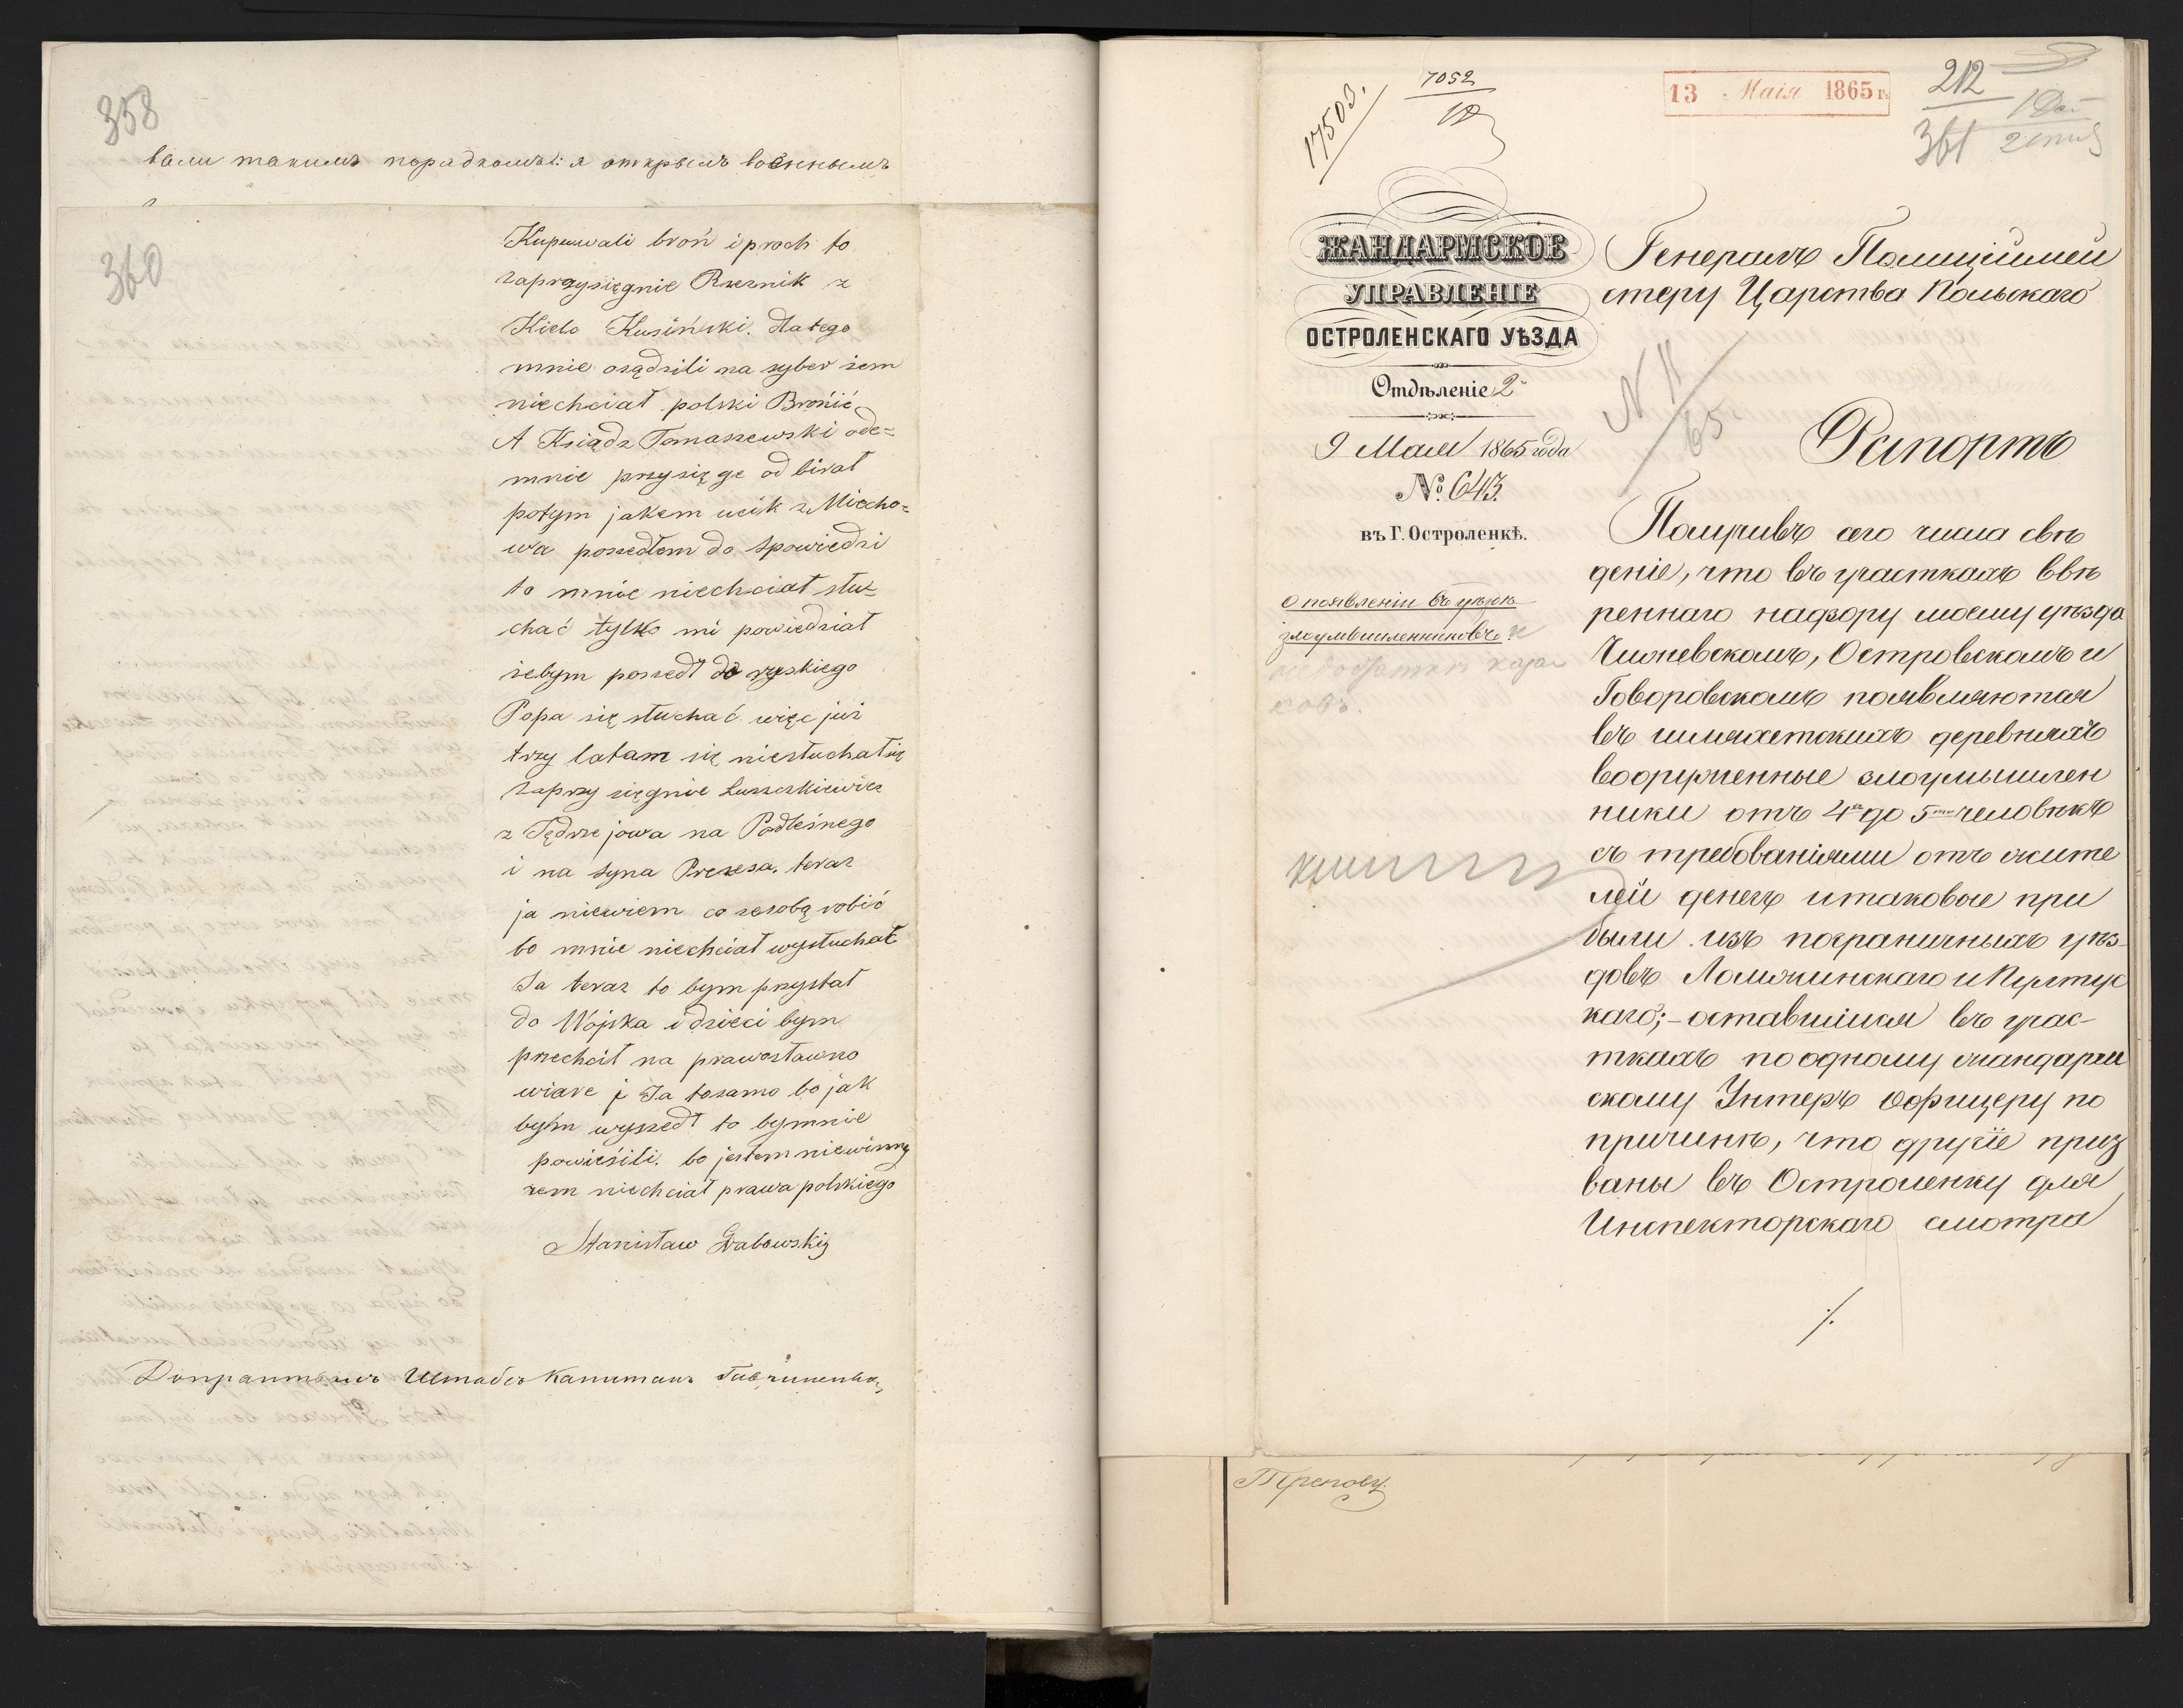 358
вали такимъ порядкомъ: я открылъ военнымъ
360
Kupuwali broń i proch to
zaprzysięgnie Rzeznik z
Kielc Kusiński. dlatego
mnie osądzili na syber żem
niechciał polski Bronić
A Ksiądz Tomaszewski ode=
mnie przysięge od birał
potym jakem ucik z Miecho=
wa poszedłem do Spowiedzi
to mnie niechciał słu=
chać tylko mi powiedział
żebym poszedł do ruskiego
Popa się słuchać więc już
trzy latam się niesłuchał się
zaprzy sięgnie Łuszczkiewicz
z Jędrzejowa na Podleśnego
i na syna Prezesa. teraz
ja niewiem co zesobą robić
bo mnie niechciał wysłuchać
Ja teraz to bym przystał
do Wojska i dzieci bym
przechcił na prawosławno
wiare i Ja tosamo bo jak
bym wyszedł to bymnie
powieśili. bo jestem niewinny
żem niechciał prawa polskiego
Stanisław Grabowskig
Штабсъ Капитанъ
17503.
7052
13 Маія 1865 г.
212
361
ЖАНДАРМСКОЕ
УПРАВЛЕНІЕ
ОСТРОЛЕНСКАГО УѢЗДА
Отдѣленіе 2
9 Мая 1865 года
№. 643.
въ Г. Остроленкѣ.
О появленіи въ уѣздѣ
злоумышленниковъ и
Генералъ Полиціймей
стеру Царства Польскаго
N 11
65
Рапортъ
Получивъ сего числа свѣ
деніе, что въ участкахъ ввѣ
реннаго надзору моему уѣзда
Чижевскомъ, Островскомъ и
Говоровскомъ появляются
въ шляхетскихъ деревняхъ
вооруженные злоумышлен
ники отъ 4хъ до 5ти человѣкъ
съ требованіями отъ жите
лей денегъ и таковые при
были изъ пограничныхъ уѣз-
довъ Ломжинскаго и Пултус
каго; - оставшимся въ учас-
ткахъ по одному жандарм
скому Унтеръ Офицеру по
причинѣ, что другіе приз
ваны въ Остроленку для
Инспекторскаго смотра
./.
Трепову.